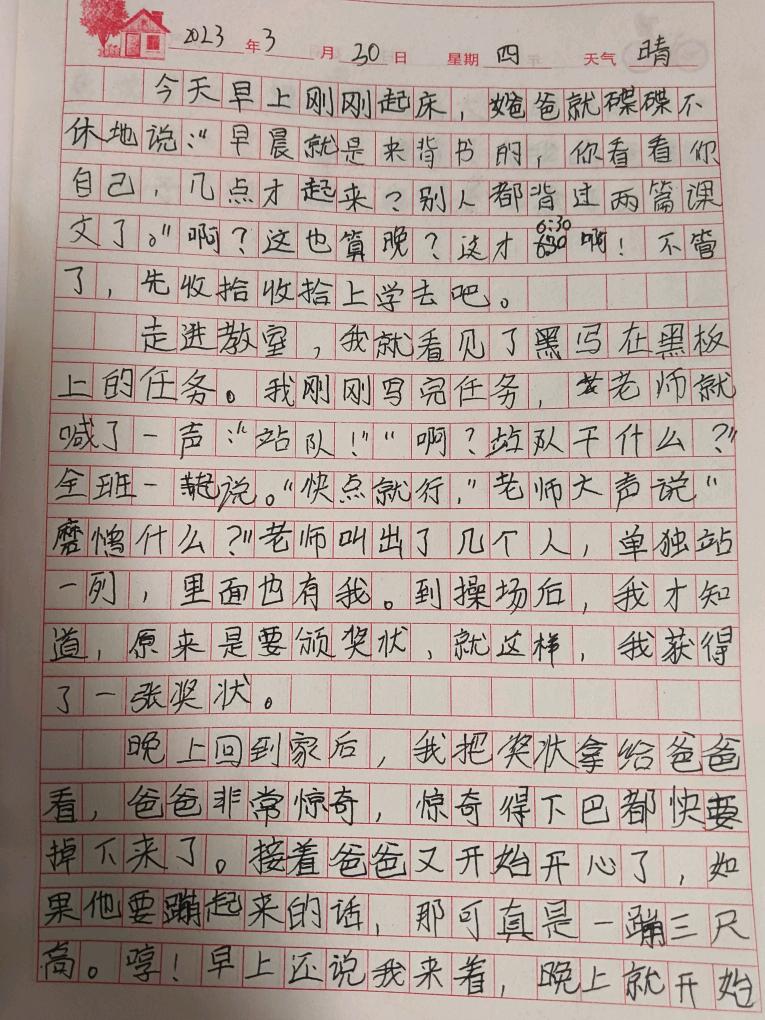 2023年3月30日 星期四 天气晴
今天早上刚刚起床，爸爸就碟碟不
休地说："早晨就是来背书的，你看看你
自己，几点才起来？别人都背过两篇课
文了。"啊？这也算晚？这才6:30啊！不管
了，先收拾收拾上学去吧。
走进教室，我就看见了写在黑板
上的任务。我刚刚写完任务，老师就
喊了一声："站队！""啊？站队干什么？"
全班一起说。"快点就行，"老师大声说"
磨蹭什么？"老师叫出了几个人，单独站
一列，里面也有我。到操场后，我才知
道，原来是要颁奖状，就这样，我获得
了一张奖状。
晚上回到家后，我把奖状拿给爸爸
看，爸爸非常惊奇，惊奇得下巴都快要
掉下来了。接着爸爸又开始开心了，如
果他要蹦起来的话，那可真是一蹦三尺
高。哼！早上还说我来着，晚上就开始